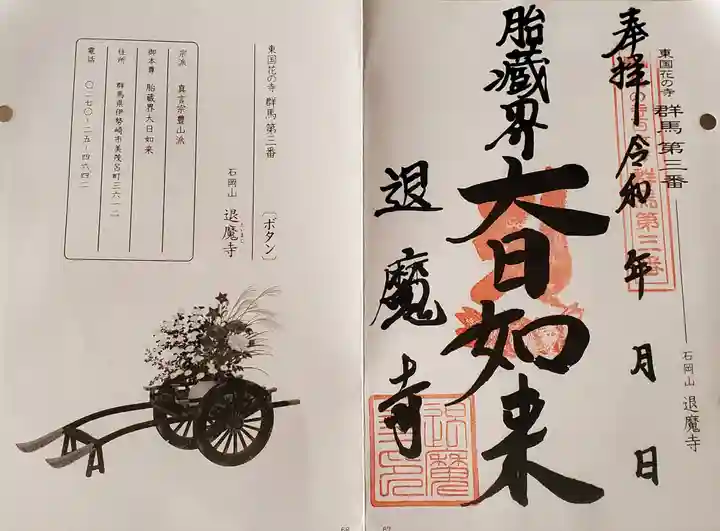 東国花の寺 群馬第三番
石岡山 退魔寺
奉拝 令和 年 月 日
群馬第三番
胎蔵界大日如来
退魔寺
東国花の寺 群馬第三番 〔ボタン〕
石岡山 退魔寺
たいまじ
宗派 真言宗豊山派
御本尊 胎蔵界大日如来
住所 群馬県伊勢崎市美茂呂町三六一二
電話 〇二七〇-二五-四六四二